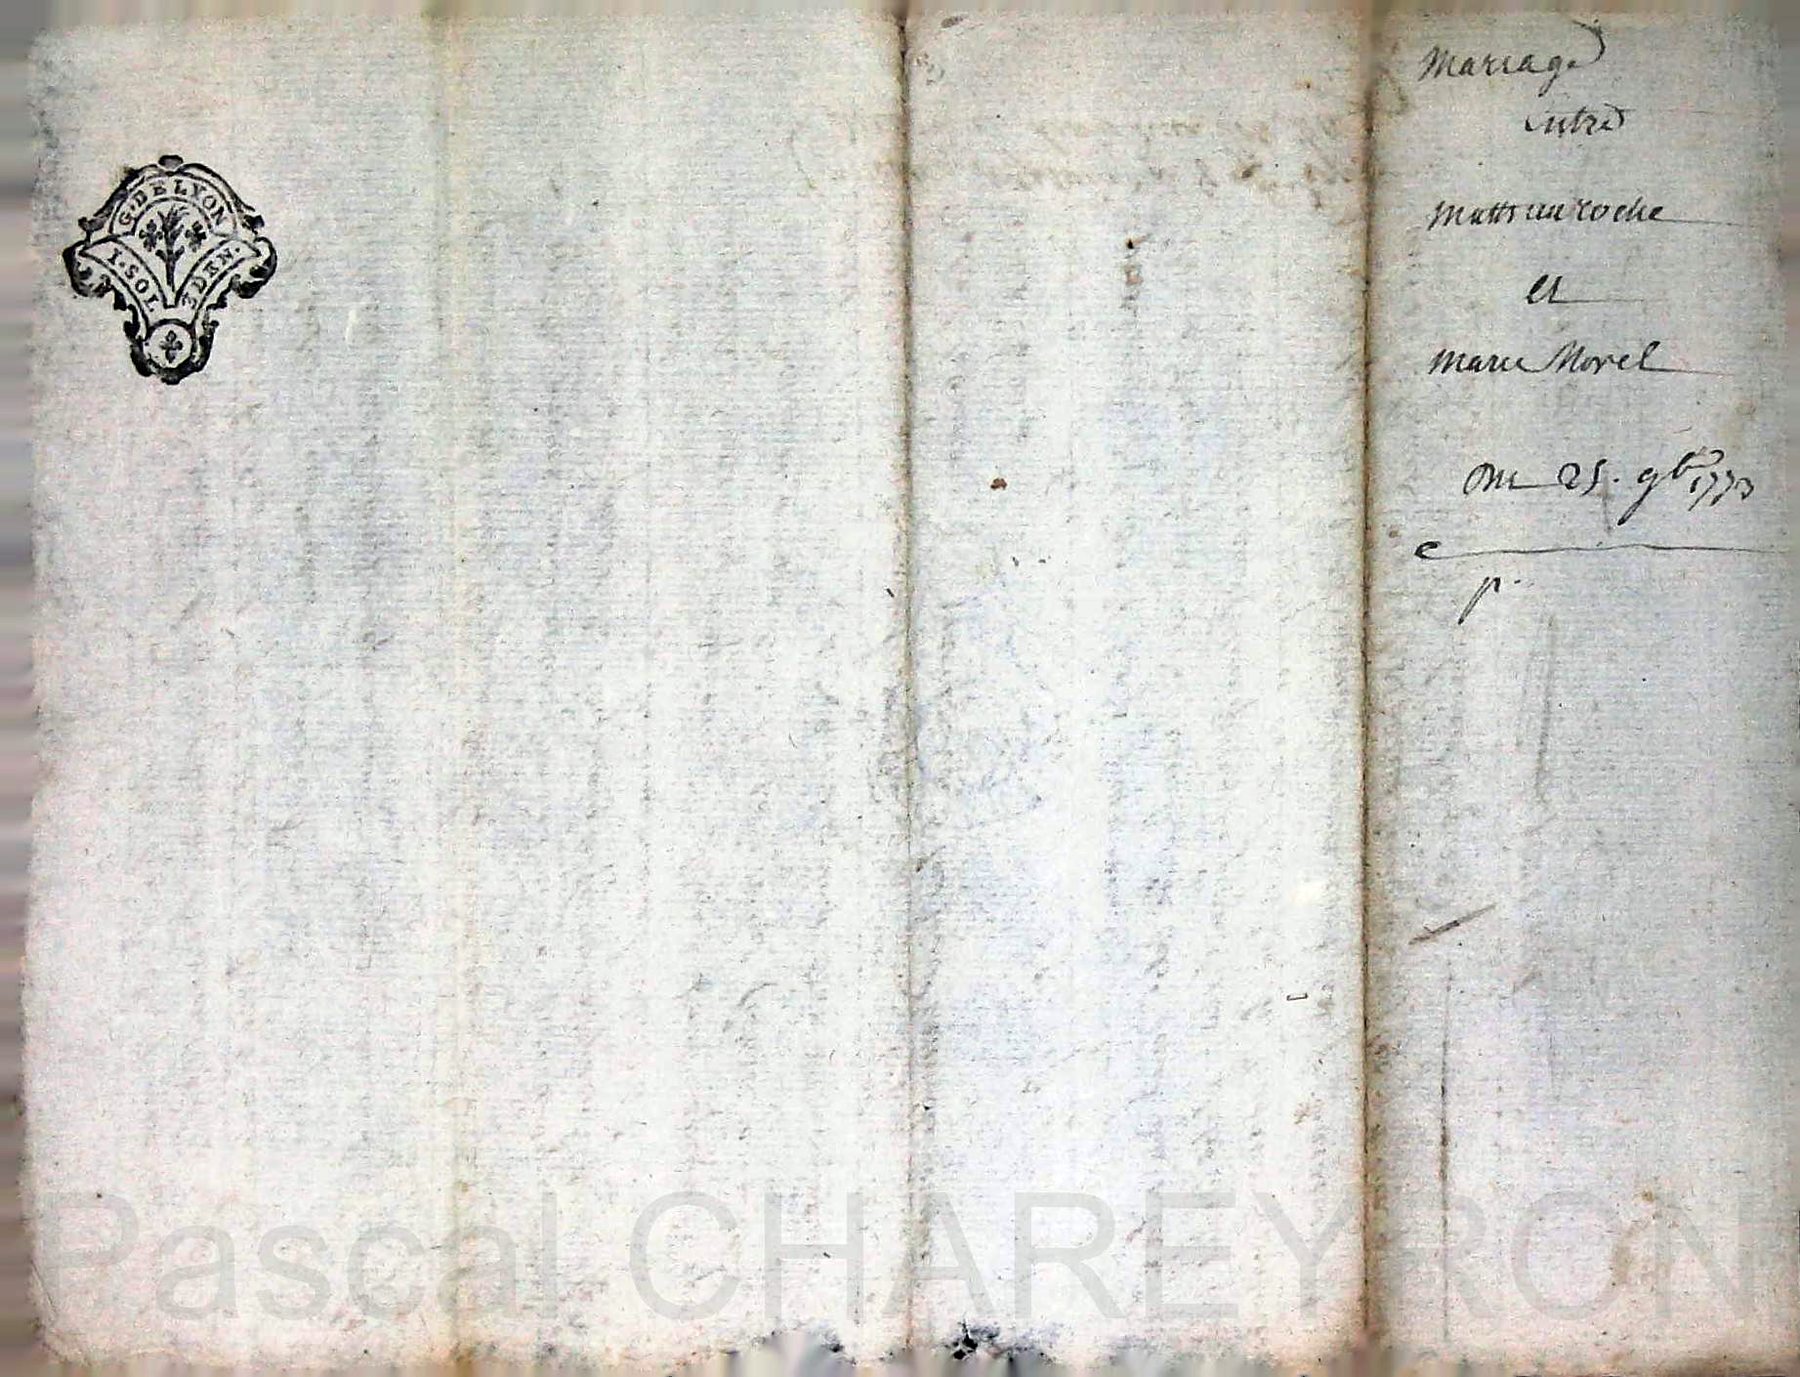 G. DE LYON
I. SOL 3 DEN.
Mariage
entre
Matthieu roche
et
Marie Morel
Du 25. 9bre 1773
p.
Pascal CHAREYRON